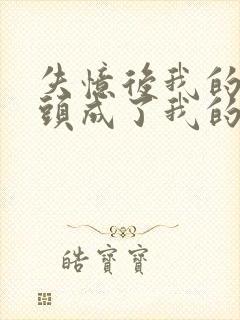 失憶後我的
頭成了我的
皓寶寶